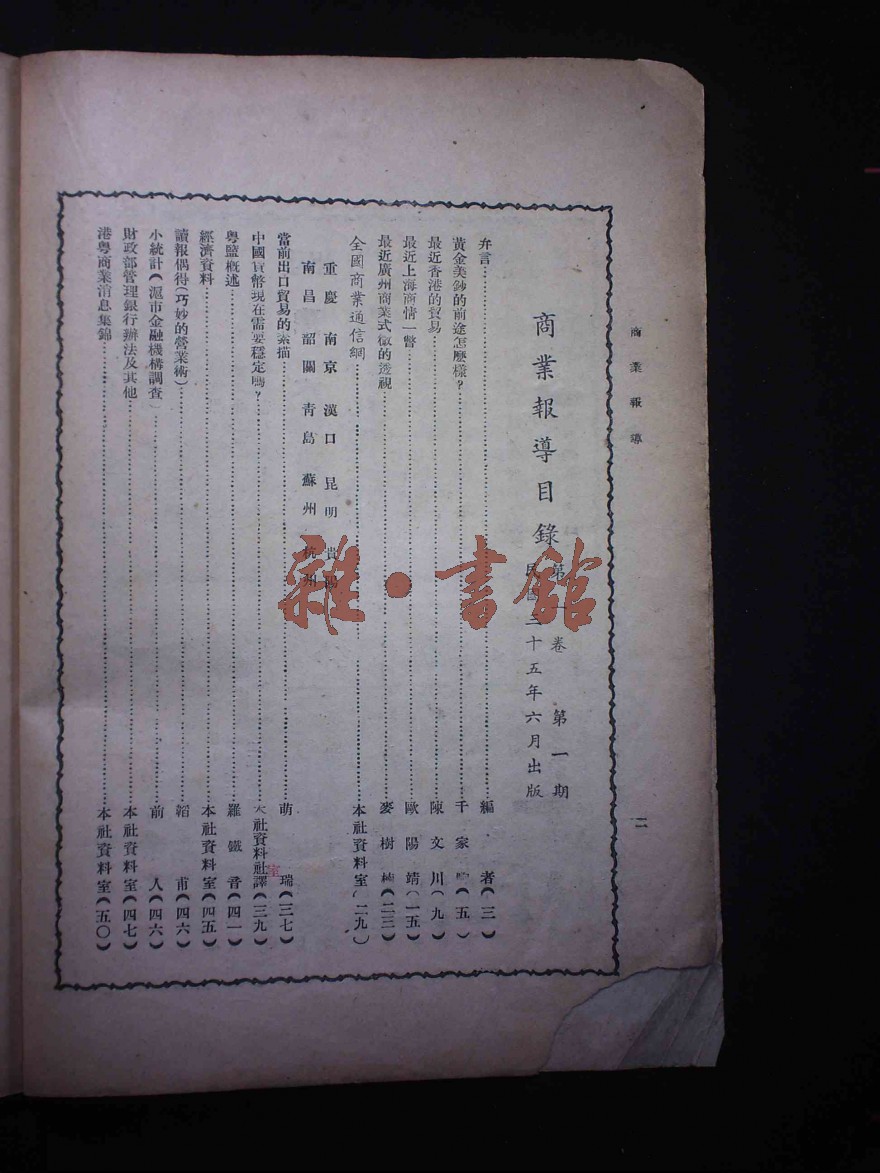 商業報導
二
商業報導目錄
第一卷 第一期
民國三十五年六月出版
弁言……編者(三)
黃金美鈔的前途怎麽樣?……千家(五)
最近香港的貿易……陳文川(九)
最近上海商情一瞥……歐陽靖(一五)
最近廣州商業式微的透視……麥樹(二三)
全國商業通信網……本社資料室(二九)
重慶 南京 漢口 昆明 貴陽
南昌 韶關 靑島 蘇州 杭州
當前出口貿易的素描……萌瑞(三七)
中國貨幣現在需要穩定嗎?……本社資料社譯(三九)
室
粤鹽概述……羅鐵音(四一)
經濟資料……本社資料室(四五)
讀報偶得(巧妙的營業術)……韜甫(四六)
小統計(滬市金融機構調查)……前人(四六)
財政部管理銀行辦法及其他……本社資料室(四七)
港粤商業消息集錦……本社資料室(五〇)
雜·書館